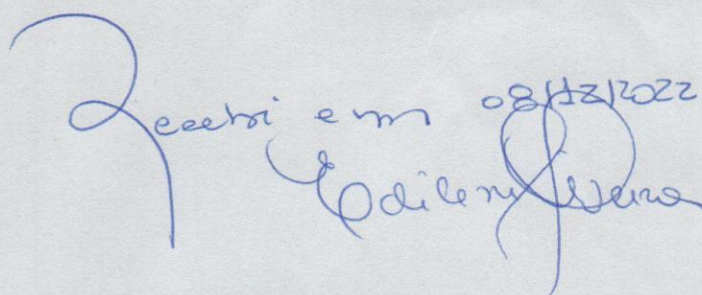 Recebi em 08/12/2022
Edilene